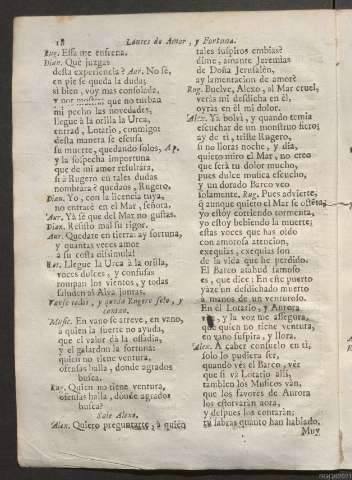 18 Lances de Amor, y Fortuna.
Rug. Essa me enseña.
Dian. Què juzgas
desta experiencia? Aur. No sè,
en pie se queda la duda;
si bien, voy mas consolada,
y por mostrar que no turban
mi pecho las novedades,
llegue à la orilla la Urca,
entrad, Lotario, conmigo:
desta manera se escusa
su muerte, quedando solos, Ap.
y la sospecha importuna
que de mi amor resultàra,
si à Rugero en tales dudas
nombràra è quedaos, Rugero.
Dian. Yo, con la licencia tuya,
no entrarè en el Mar, señora.
Aur. Yà sè que del Mar no gustas.
Dian. Resisto mal su rigor.
Aur. Quedate en tierra: ay fortuna,
y quantas veces amor
a su costa dissimula!
Rot. Llegue la Urca à la orilla,
voces dulces, y confusas
rompan los vientos, y todas
saluden al Alva juntas.
Vanse todos, y queda Rugero solo, y
cantan.
Music. En vano se atreve, en vano,
à quien la suerte no ayuda,
que el valor dà la ossadia,
y el galardon la fortuna:
quien no tiene ventura,
ofensas halla, donde agrados
busca.
Rug. Quien no tiene ventura,
ofensas halla, donde agrados
busca?
Sale Alexo.
Alex. Quiero preguntarte, à quien
tales suspiros embias?
dime, amante Jeremias
de Doña Jerusalèn,
ay lamentacion de amor?
Rug. Buelve, Alexo, al Mar cruel,
veràs mi desdicha en èl,
oyràs en èl mi dolor.
Alex. Yà bolvì, y quando temia
escuchar de un monstruo fiero;
ay de tì, triste Rugero,
si no lloras noche, y dia,
quieto miro el Mar, no creo
que serà tu dolor mucho,
pues dulce musica escucho,
y un dorado Barco veo
solamente. Rug. Pues advierte,
q aunque quieto el Mar se ostenta,
yo estoy corriendo tormenta,
yo estoy bebiendo la muerte;
estas voces que has oìdo
con amorosa atencion,
exequias, exequias son
de la vida que he perdido.
El Barco atahud famoso
es, que dice: En este puerto
yaze un desdichado muerto
à manos de un venturoso.
En èl Lotario, y Aurora
và, y la voz me assegura,
que quien no tiene ventura,
en vano suspira, y llora.
Alex. A caber consuelo en tì,
solo lo pudiera ser,
quando vès el Barco, vèr
que si và Lotario allì,
tambien los Musicos vàn,
que los favores de Aurora
los estorvaràn aora,
y despues los contaràn;
tù sabràs quanto han hablado.
Muy